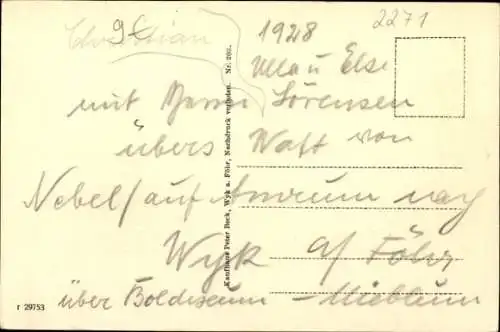 Christian 9-
1928
2271
Ulla u Else
mit Herrn Sörensen
übers Watt von
Nebel/auf Amrum nach
Wyk a/ Föhr
über Boldixum - Nieblum
Kaufhaus Peter Beck, Wyk a. Föhr, Nachdruck verboten. Nr. 202.
r 29753